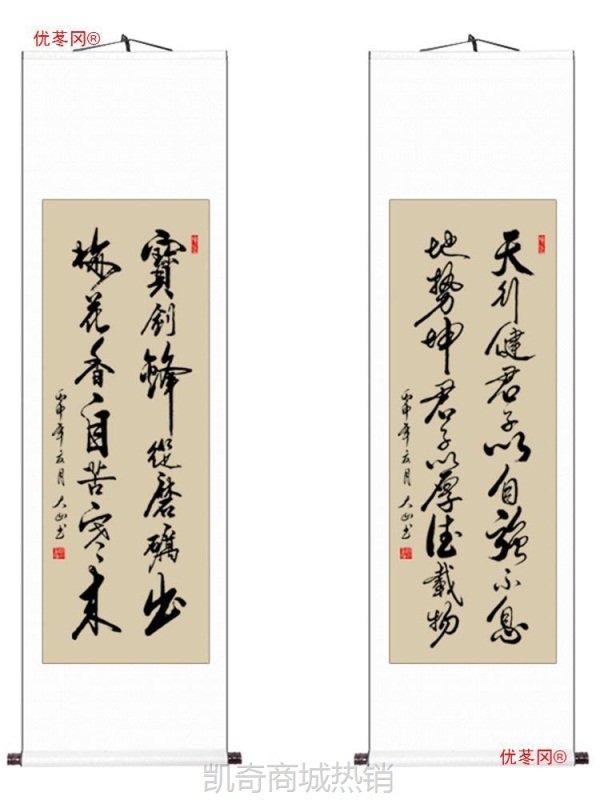 优苳冈®
寶劍鋒從磨礪出
梅花香自苦寒來
丙申年玄月 大山书
天行健君子以自強不息
地勢坤君子以厚德載物
丙申年玄月 大山书
优苳冈®
凯奇商城热销